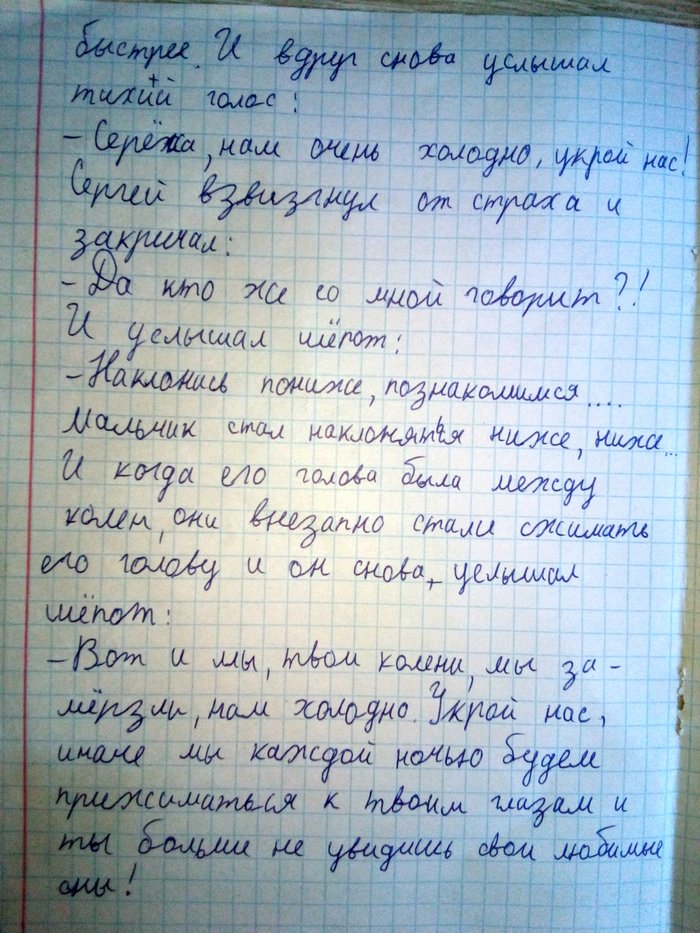 быстрее. И вдруг снова услышал
тихий голос:
– Серёжа, нам очень холодно, укрой нас!
Сергей взвизгнул от страха и
закричал:
– Да кто же со мной говорит?!
И услышал шёпот:
– Наклонись пониже, познакомимся....
Мальчик стал наклоняться ниже, ниже...
И когда его голова была между
колен, они внезапно стали сжимать
его голову и он снова, услышал
шёпот:
– Вот и мы, твои колени, мы за-
мёрзли, нам холодно. Укрой нас,
иначе мы каждой ночью будем
прижиматься к твоим глазам и
ты больше не увидишь свои любимые
сны!